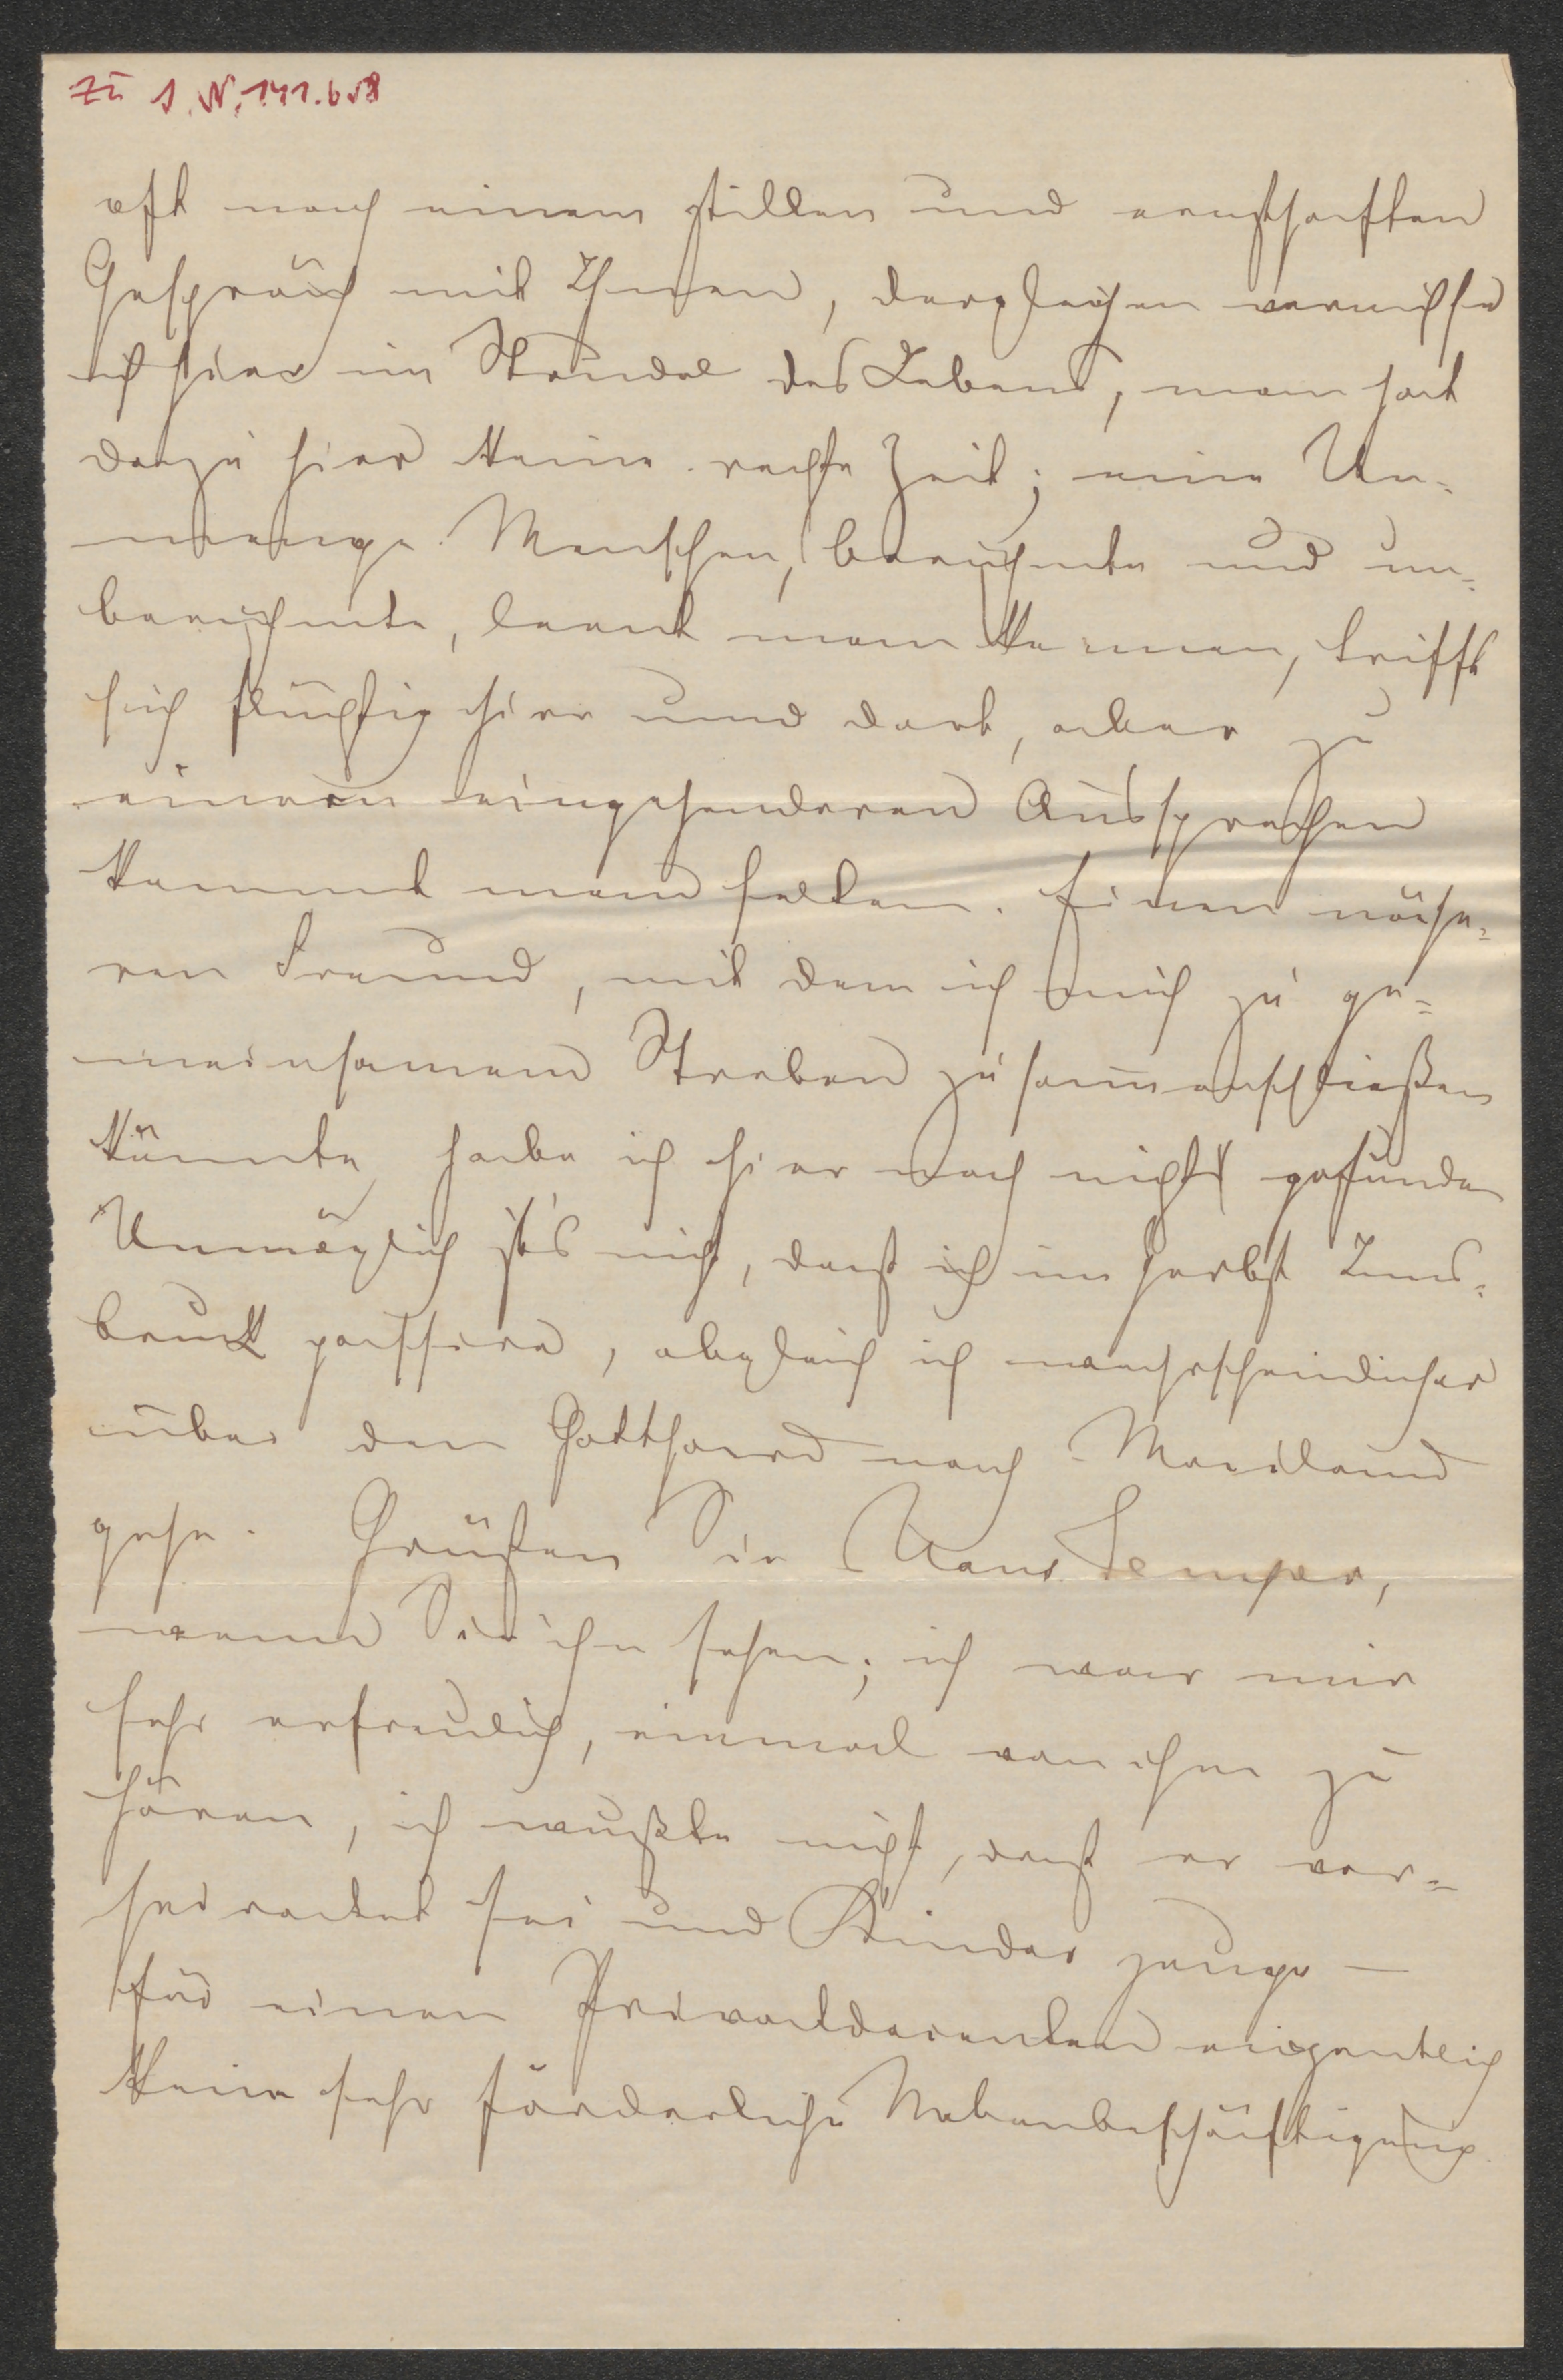 Zu I. N. 141.658
oft nach einem stillen und ernsthaften
Gespräch mit Ihnen, dergleichen vermisse
ich hier im Strudel des Lebens, man hat
dazu hier keine rechte Zeit; eine Un-
menge Menschen, beruehmte und un-
beruehmte, lernt man kennen, trifft
sich flüchtig hier und dort, aber zu
einem eingehenderen Aussprechen
kommt man selten. Einen nähe-
ren Freund, mit dem ich mich zu ge-
meinsamem Streben zusammenschließen
könnte, habe ich hier noch nicht gefunden
Unmöglich ist's nicht, daß ich im Herbst Inns-
bruck passire, obgleich ich wahrscheinlicher
über den Gotthard nach Mailand
gehe. Grüßen Sie Hans Semper,
wenn Sie ihn sehen; ich war mir
sehr erfreulich, einmal von ihm zu
hören, ich wußte nicht, daß er ver-
heiratet sei und Kinder zeuge —
für einen Privatdocenten eigentlich
keine sehr förderliche Nebenbeschäftigung.